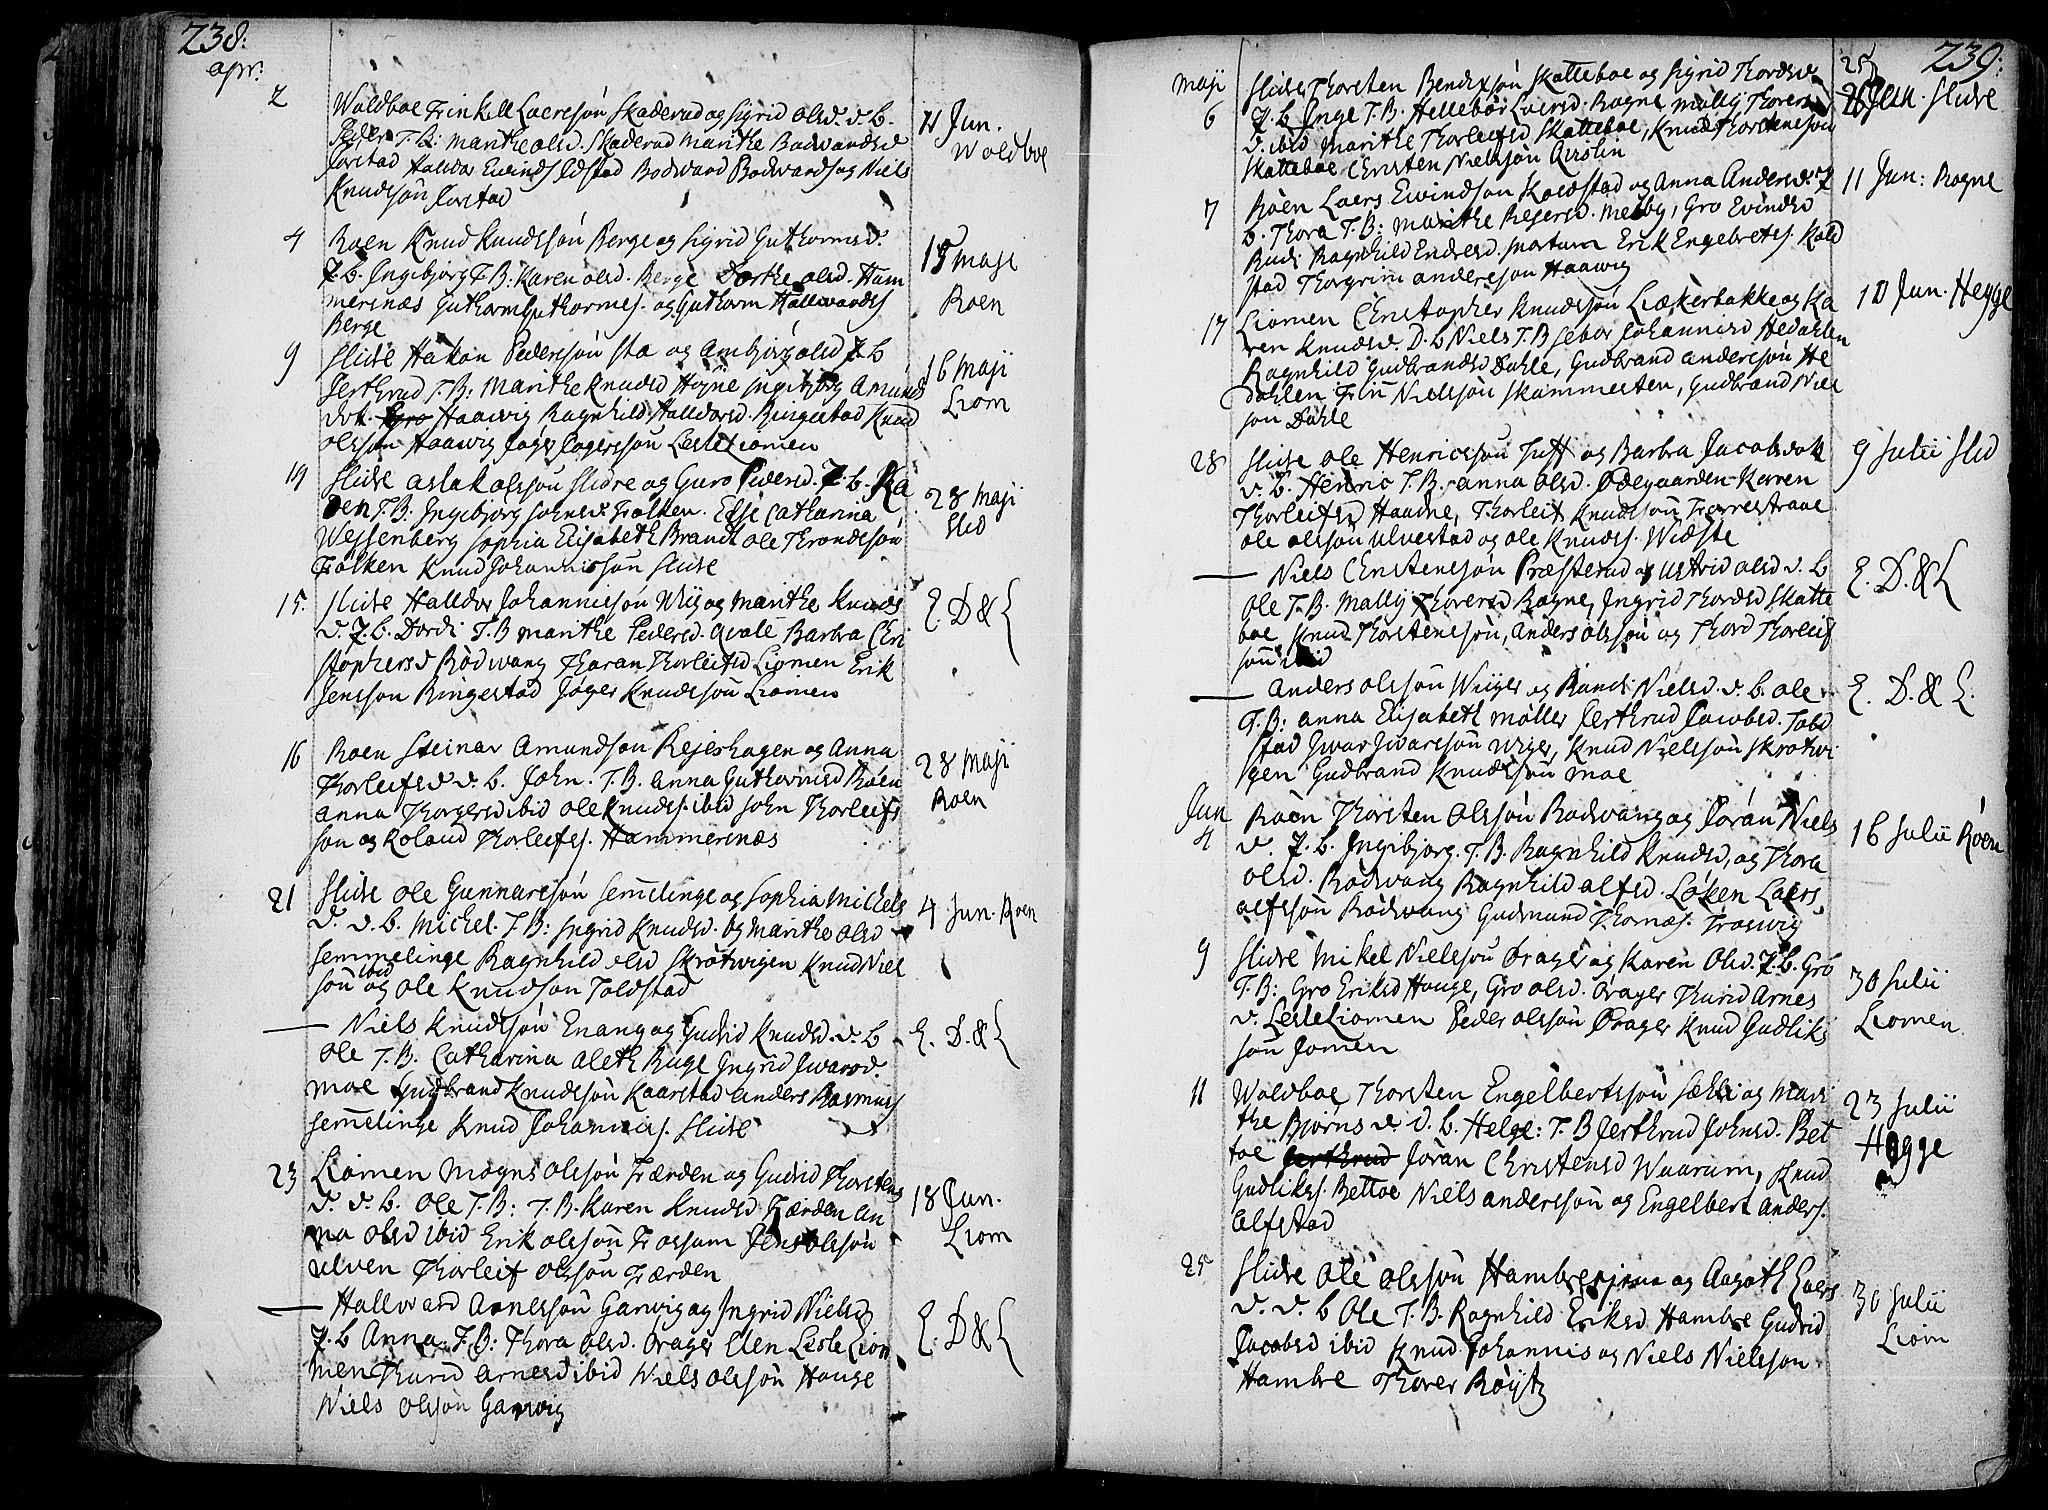 238.
apr:
2 Woldboe Frinkell Laersøn Skaderud og Sigrid Olsd. v. b.
Peder T. B: Marithe Olsd. Skaderud Marithe Bodwardsd
Jorstad Halldor Eivinds Jdstad Bodward Bodwards og Niels
Knudsøn Jorstad
11 Jun.
Woldboe
4 Roen Knud Knudsøn Berge og Sigrid Guthormsd.
J. b. Ingebjorg T. B: Karen Olsd. Berge Dorthe Olsd. Ham
mersnæs Guthorm Guthormss. og Guthorm Hallwards
Berge
15 Maji
Roen
9 Slidre Hakon Pedersøn Sta og Ambjørg Olsd J b
Jerthrud T. B: Marithe Knudsd Høyne Ingebjorg Amunds
dot. Haawig Ragnhild Halldorsd. Ringestad Knud
Olssøn Haawig Jøger Jogerssøn Lesle Liomen
16 Maji
Liom
14 Slidre Aslak Olssøn Slidre og Guro Pedersd. J. b. Ka
ren T. B. Ingebjorg Johnsd. Folken. Else Catharina
Wessenberg Sophia Elisabeth Brandt Ole Throndsøn
Folken Knud Johannissøn Slidre
28 Maji
Slid
15. Slidre Halldor Johannissøn Wiig og Marithe Knuds
d. J. b. Dordi T. B Marithe Pedersd. Qvale Barbra Chri
stophersd Rødwang Tharan Thorleifsd Liomen Erik
Jenssøn Ringestad Jøger Knudsøn Liomen
E. D &
16 Roen Steinar Amundsøn Rejeshagen og Anna
Thorleifsd v. b. John. T. B. Anna Guthormsd Røen
Anna Thorgersd ibid Ole Knudss. ibid John Thorleifs
søn og Roland Thorleifss. Hammersnæs
28 Maji
Roen
21 Slidre Ole Gunnarssøn Semelinge og Sophia Michels
d. v. b. Michel. T. B: Ingrid Knudsd. og Marithe Olsd
Semmelinge Ragnhild Olsd Skrøtwigen Knud Niel
søn ibid og Ole Knudsøn Toldstad
4 Jun. Roen
— Niels Knudsøn Enang og Gudrid Knudsd. v. b
Ole T. B. Catharina Aleth Ruge Ingrid Jwarsd.
Moe Gudbrand Knudssøn Kaarstad Anders Rasmuss
Semelinge Knud Johanniss. Slidre
E. D. &
23 Liomen Mogns Olssøn Færden og Gudrid Thorstens
d. v. b. Ole T. B: T. B. Karen Knudsd Færden An
na Olsd ibid Erik Olssøn Fossum Jens Olssøn
Ulven Thorleif Olssøn Færden
18 Jun.
Liom
— Hallward Arnessøn Garwig og Ingrid Nielsd
J. b Anna. T. B: Thora Olsd. Drager Elen Lesle Lio
men Thurid Arnesd ibid Niels Olssøn Hauge
Niels Olssøn Garwig
E. D &
239.
Maji
6 Slidre Thorsten Bendixsøn Skatteboe og Sigrid Thordsd.
J. b Inge T. B. Hellebør Laersd. Rogne Mally Thorers
d. ibid Marithe Thorleifsd Skatteboe, Knud Thorstenssøn
Skatteboe Christen Nielssøn Qvislin
25
Jun. Slidre
7 Røen Laers Eivindsøn Kolsstad og Anna Andersd. J
b. Thora T. B: Marithe Rejersd. Melby, Gro Evindsd
Rudi Ragnhild Endresd. Mortum Erik Engebretss. Kold
stad Thorgrim Anderssøn Haawig
11 Jun: Rogne
17 Liomen Christopher Knudssøn Liækerbakke og Ka
ren Knudsd. D. b Niels T. B Sebor Johannisd Hedahlen
Ragnhild Gudbrandsd Dahle, Gudbrand Anderssøn He
dahlen Finn Nielssøn Skammesten, Gudbrand Niel
søn Dahle
10 Jun. Hegge
28 Slidre Ole Henricssøn Tuff og Barbra Jacobsdot
v. b. Henric T. B. Anna Olsd. Ødegaarden Karen
Thorleifsd Haadne, Thorleif Knudssøn Forrestrane
Ole Olssøn Ulvestad og Ole Knudss. Widste
9 Julii Slid
— Niels Christenssøn Præsterud og Ustrid Olsd v. b
Ole T. B. Mally Thorersd Rogne, Ingrid Thordsd Skatte
boe Knud Thorstenssøn, Anders Olssøn og Thord Thorleif
søn ibid
E. D. &
— Anders Olssøn Wiiger og Randi Nielsd. v. b. Ole
T. B: Anna Elisabeth Møller Jerthrud Jacobsd. Told
stad Jwar Jwarssøn Wiger, Knud Nielssøn Skrøtwi
gen Gudbrand Knudssøn Moe
E. D. &
Jun
4 Roen Thorsten Olssøn Rødwang og Joran Niels
d. J. b. Ingebjorg. T. B. Ragnhild Knudsd, og Thora
Olsd. Rødwang Ragnhild Alfsd. Løken Laers
Alfssøn Rødwang Gudmund Thomæs. Froswig
16 Julii Røen
9 Slidre Mikel Nielssøn Drager og Karen Olsd. J. b. Gro
T. B: Gro Eriksd Houge, Gro Olsd. Drager Thurid Arnes
d. Lesle Liomen Peder Olssøn Drager Knud Gudliks
søn Jomen
30 Julii
Liomen
11 Woldboe Thorsten Engelbertssøn Sælli og Mari
the Bjørns d. v. b. Helge: T. B Jerthrud Johnsd. Bet
toe Joran Christensd Waarum, Knud
Gudlikss. Bettoe Niels Anderssøn og Engelbert Anders.
Alfstad
23 Julii
Hegge
25 Slidre Ole Olssøn Hambre og Aagoth Laers
d. v. b Ole T. B. Ragnhild Eriksd Hambre Gudrid
Jacobsd ibid Knud Johannis og Niels Nielssøn
Hambre Thorer Røyst
30 Julii
Liom